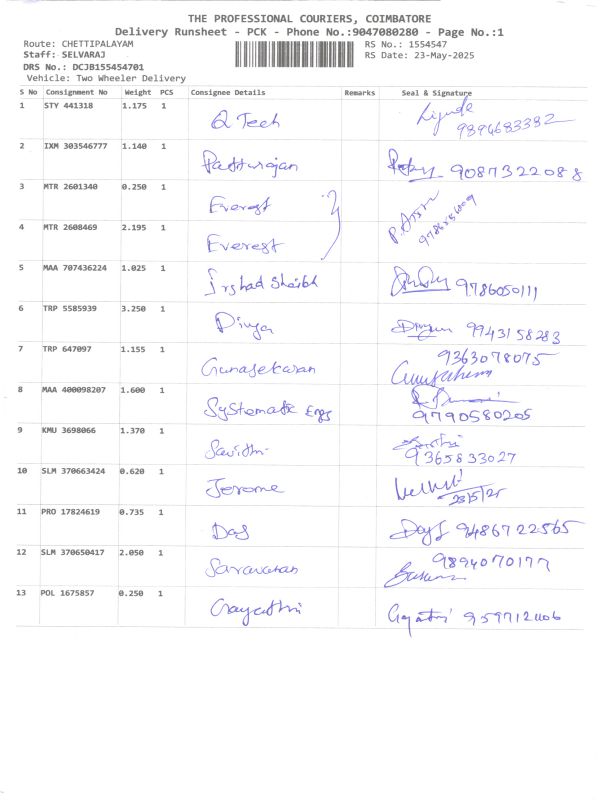 THE PROFESSIONAL COURIERS, COIMBATORE
Delivery Runsheet - PCK - Phone No.:9047080280 - Page No.:1
Route: CHETTIPALAYAM RS No.: 1554547
Staff: SELVARAJ RS Date: 23-May-2025
DRS No.: DCJB155454701
Vehicle: Two Wheeler Delivery
S No Consignment No Weight PCS Consignee Details Remarks Seal & Signature
1 STY 441318 1.175 1 Q Tech
9894683382
2 IXM 303546777 1.140 1 Patturajan 9087322088
3 MTR 2601340 0.250 1 Everest
4 MTR 2608469 2.195 1 Everest
5 MAA 707436224 1.025 1 Irshad Shaikh 9786050111
6 TRP 5585939 3.250 1 Divya 9943158283
7 TRP 647097 1.155 1 Gunasekaran 9363078075
8 MAA 400098207 1.600 1 Systematic Engs 9790580205
9 KMU 3698066 1.370 1 Savithri 9365833027
10 SLM 370663424 0.620 1 Jerome
23/5/25
11 PRO 17824619 0.735 1 Das 9486722565
12 SLM 370650417 2.050 1 Saravanan 9894070177
13 POL 1675857 0.250 1 Gayathri Gayatri